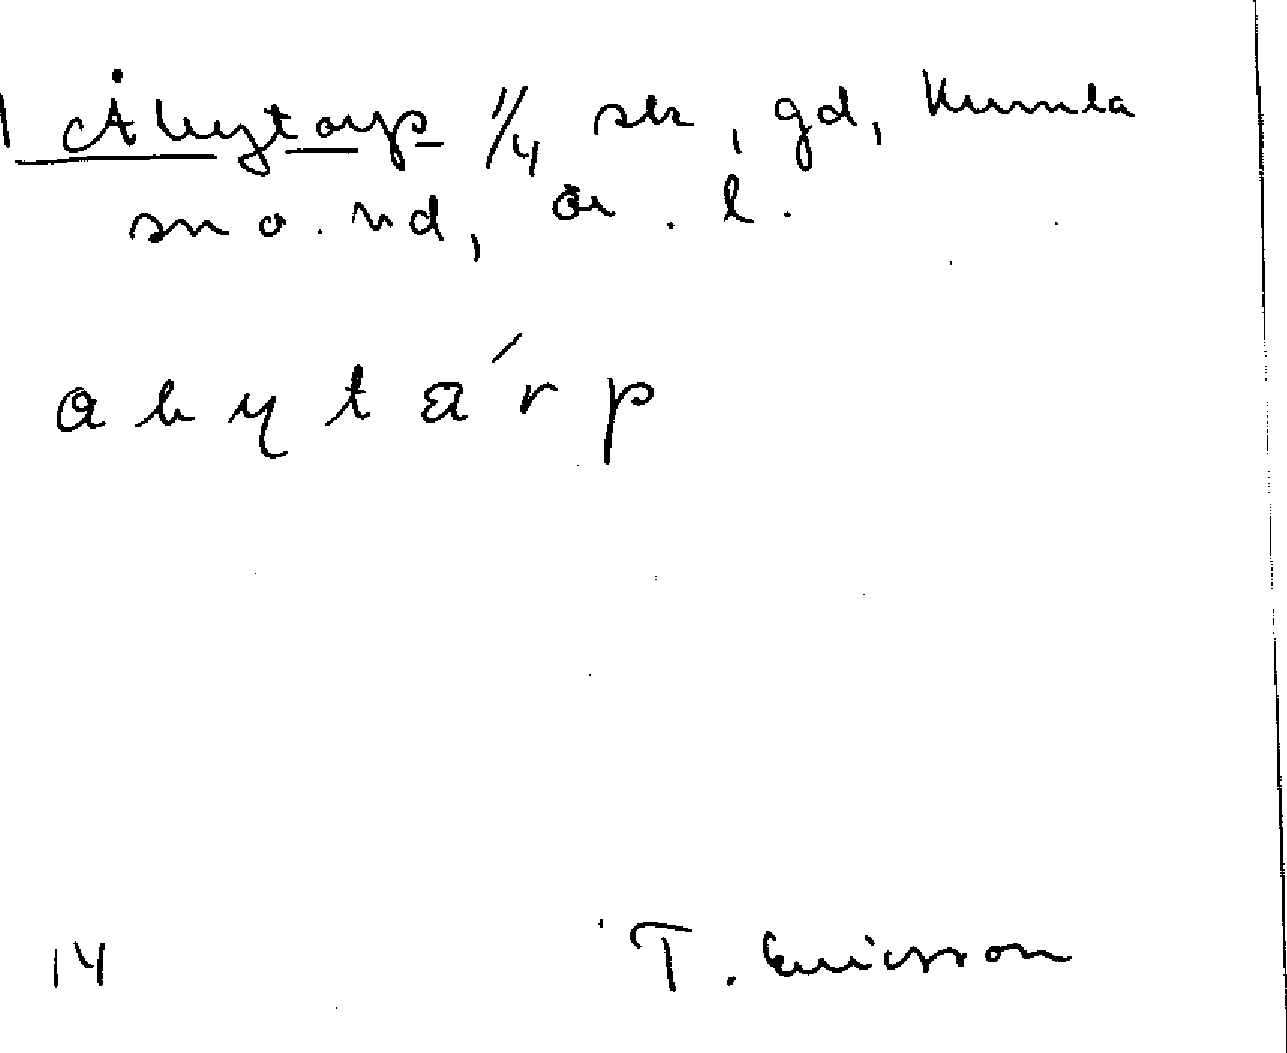 Åbytorp 1/4 sk, gd, Kumla
sn o. hd, ör. l.
a b y t å ́ r p
14
T. Ericsson